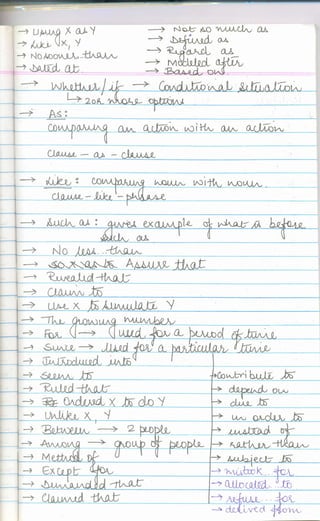 → Using X as Y
→ Like X, Y
→ No sooner than
→ Dated at
→ Not so much as
→ Defined as
→ Regard as
→ Modeled after
→ Based on
→ Whether/if → Conditional situation
↳ 2 or more options
→ As:
Comparing an action with an action
Clause - as - clause
→ Like: comparing noun with noun.
Clause - like - phrase
→ Such as: gives example of what is before such as
→ No less... than
→ Assure that
→ Revealed that
→ Claim to
→ Use X to simulate Y
→ The growing number
→ For → used for a period of time
→ Since → Used for a particular time
→ Introduced into
→ Seem to
→ Ruled that
→ Ordered X to do Y
→ Unlike X, Y
→ Between → 2 people
→ Among → group of people
→ Method of
→ Except for
→ Demanded that
→ Claimed that
→ contribute to
→ depend on
→ due to
→ in order to
→ instead of
→ rather than
→ subject to
→ mistook for
→ allocated to
→ refuse... for
→ derived from